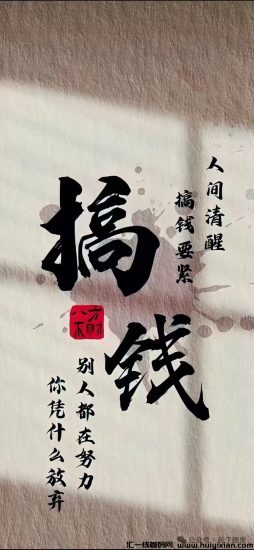 人间清醒
搞钱要紧
搞钱
八方来财
别人都在努力
你凭什么放弃
汇一线首码网
www.huiyixian.com